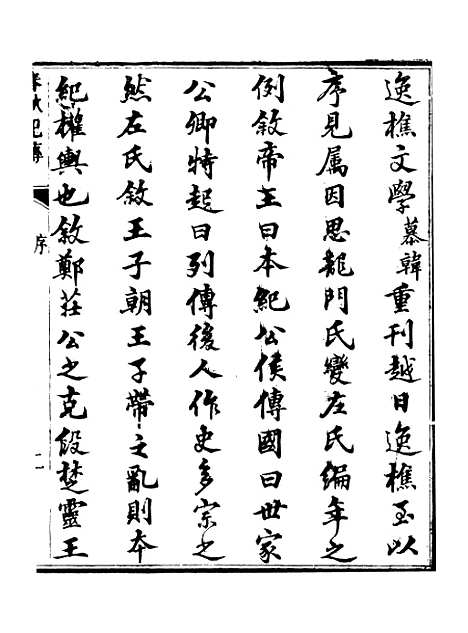 逸樵文學慕韓重刊越日逸樵至以
序見属因思龍門氏變左氏編年之
例敘帝王曰本紀公侯傳國曰世家
公卿特起曰列傳後人作史多宗之
然左氏敘王子朝王子帶之亂則本
紀權輿也敘鄭莊公之克段楚靈王
春秋紀傳
序
二